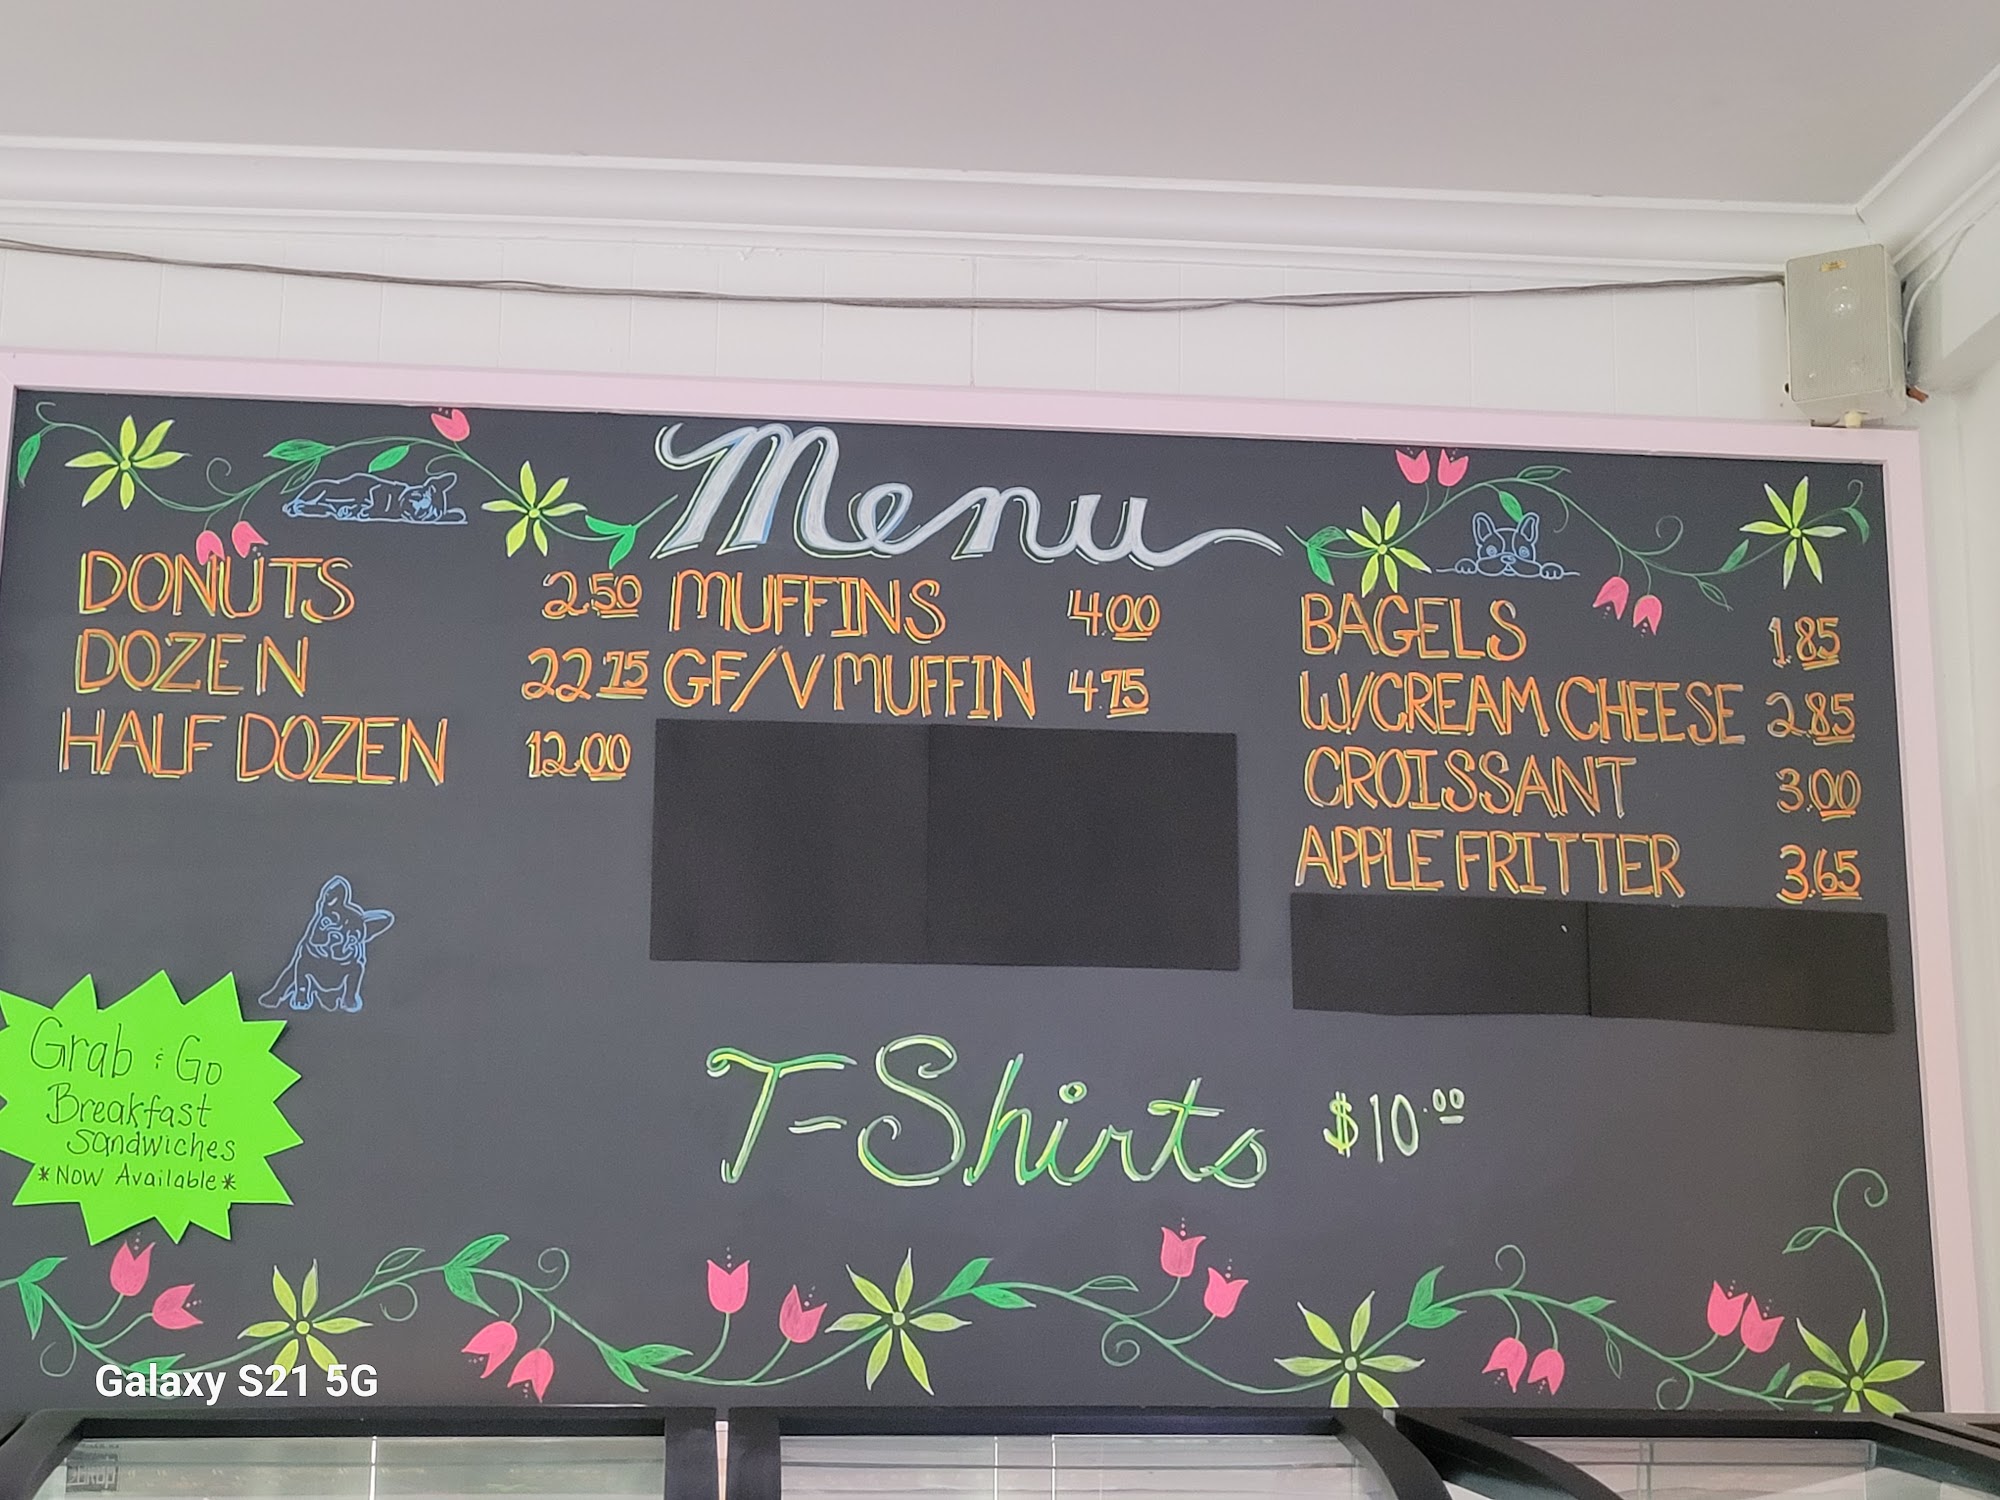 Menu
DONUTS 2.50
DOZEN 22.75
HALF DOZEN 12.00
MUFFINS 4.00
GF/V MUFFIN 4.75
BAGELS 1.85
W/CREAM CHEESE 2.85
CROISSANT 3.00
APPLE FRITTER 3.65
T-Shirts $10.00
Grab & Go
Breakfast
Sandwiches
*Now Available*
Galaxy S21 5G